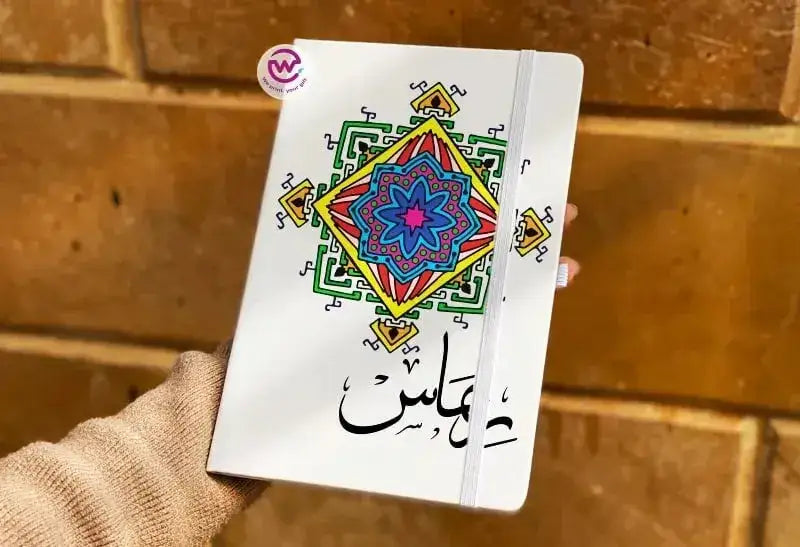 W
We print, your gift
ريماس